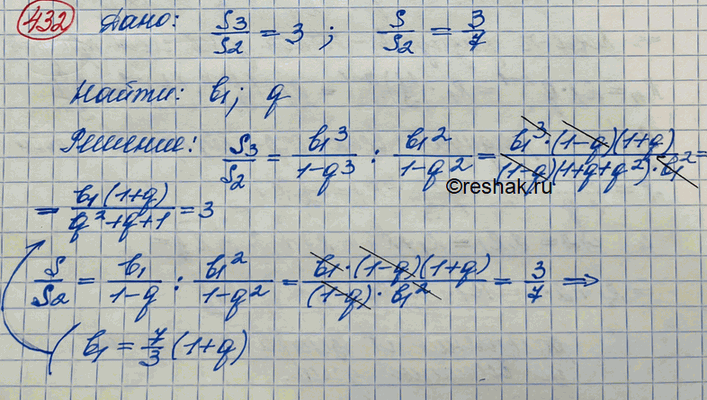 432 Дано: S3/S2 = 3 ; S/S2 = 3/7
Найти: b1; q
Решение: S3/S2 = b1^3/(1-q^3) : b1^2/(1-q^2) = b1^3·(1-q)(1+q)/((1-q)(1+q+q^2)·b1^2) =
©reshak.ru
= b1(1+q)/(q^2+q+1) = 3
S/S2 = b1/(1-q) : b1^2/(1-q^2) = b1·(1-q)(1+q)/((1-q)·b1^2) = 3/7 ⇒
b1 = 7/3 (1+q)